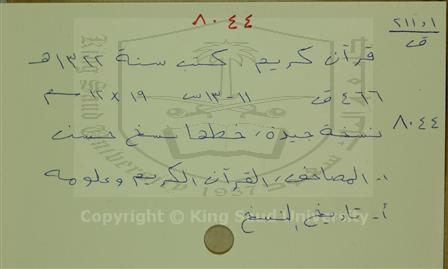 ٨٠٤٤
٢١١ر١
ق
قرآن كريم كتب سنة ١٣٢٢هـ
٤٦٦ ق ١١-١٣ س ١٩ × ١٢ سم
نسخة جيدة، خطها نسخ حسن
٨٠٤٤
١- المصاحف، القرآن الكريم وعلومه
أ- تاريخ النسخ
Copyright © King Saud University
1957